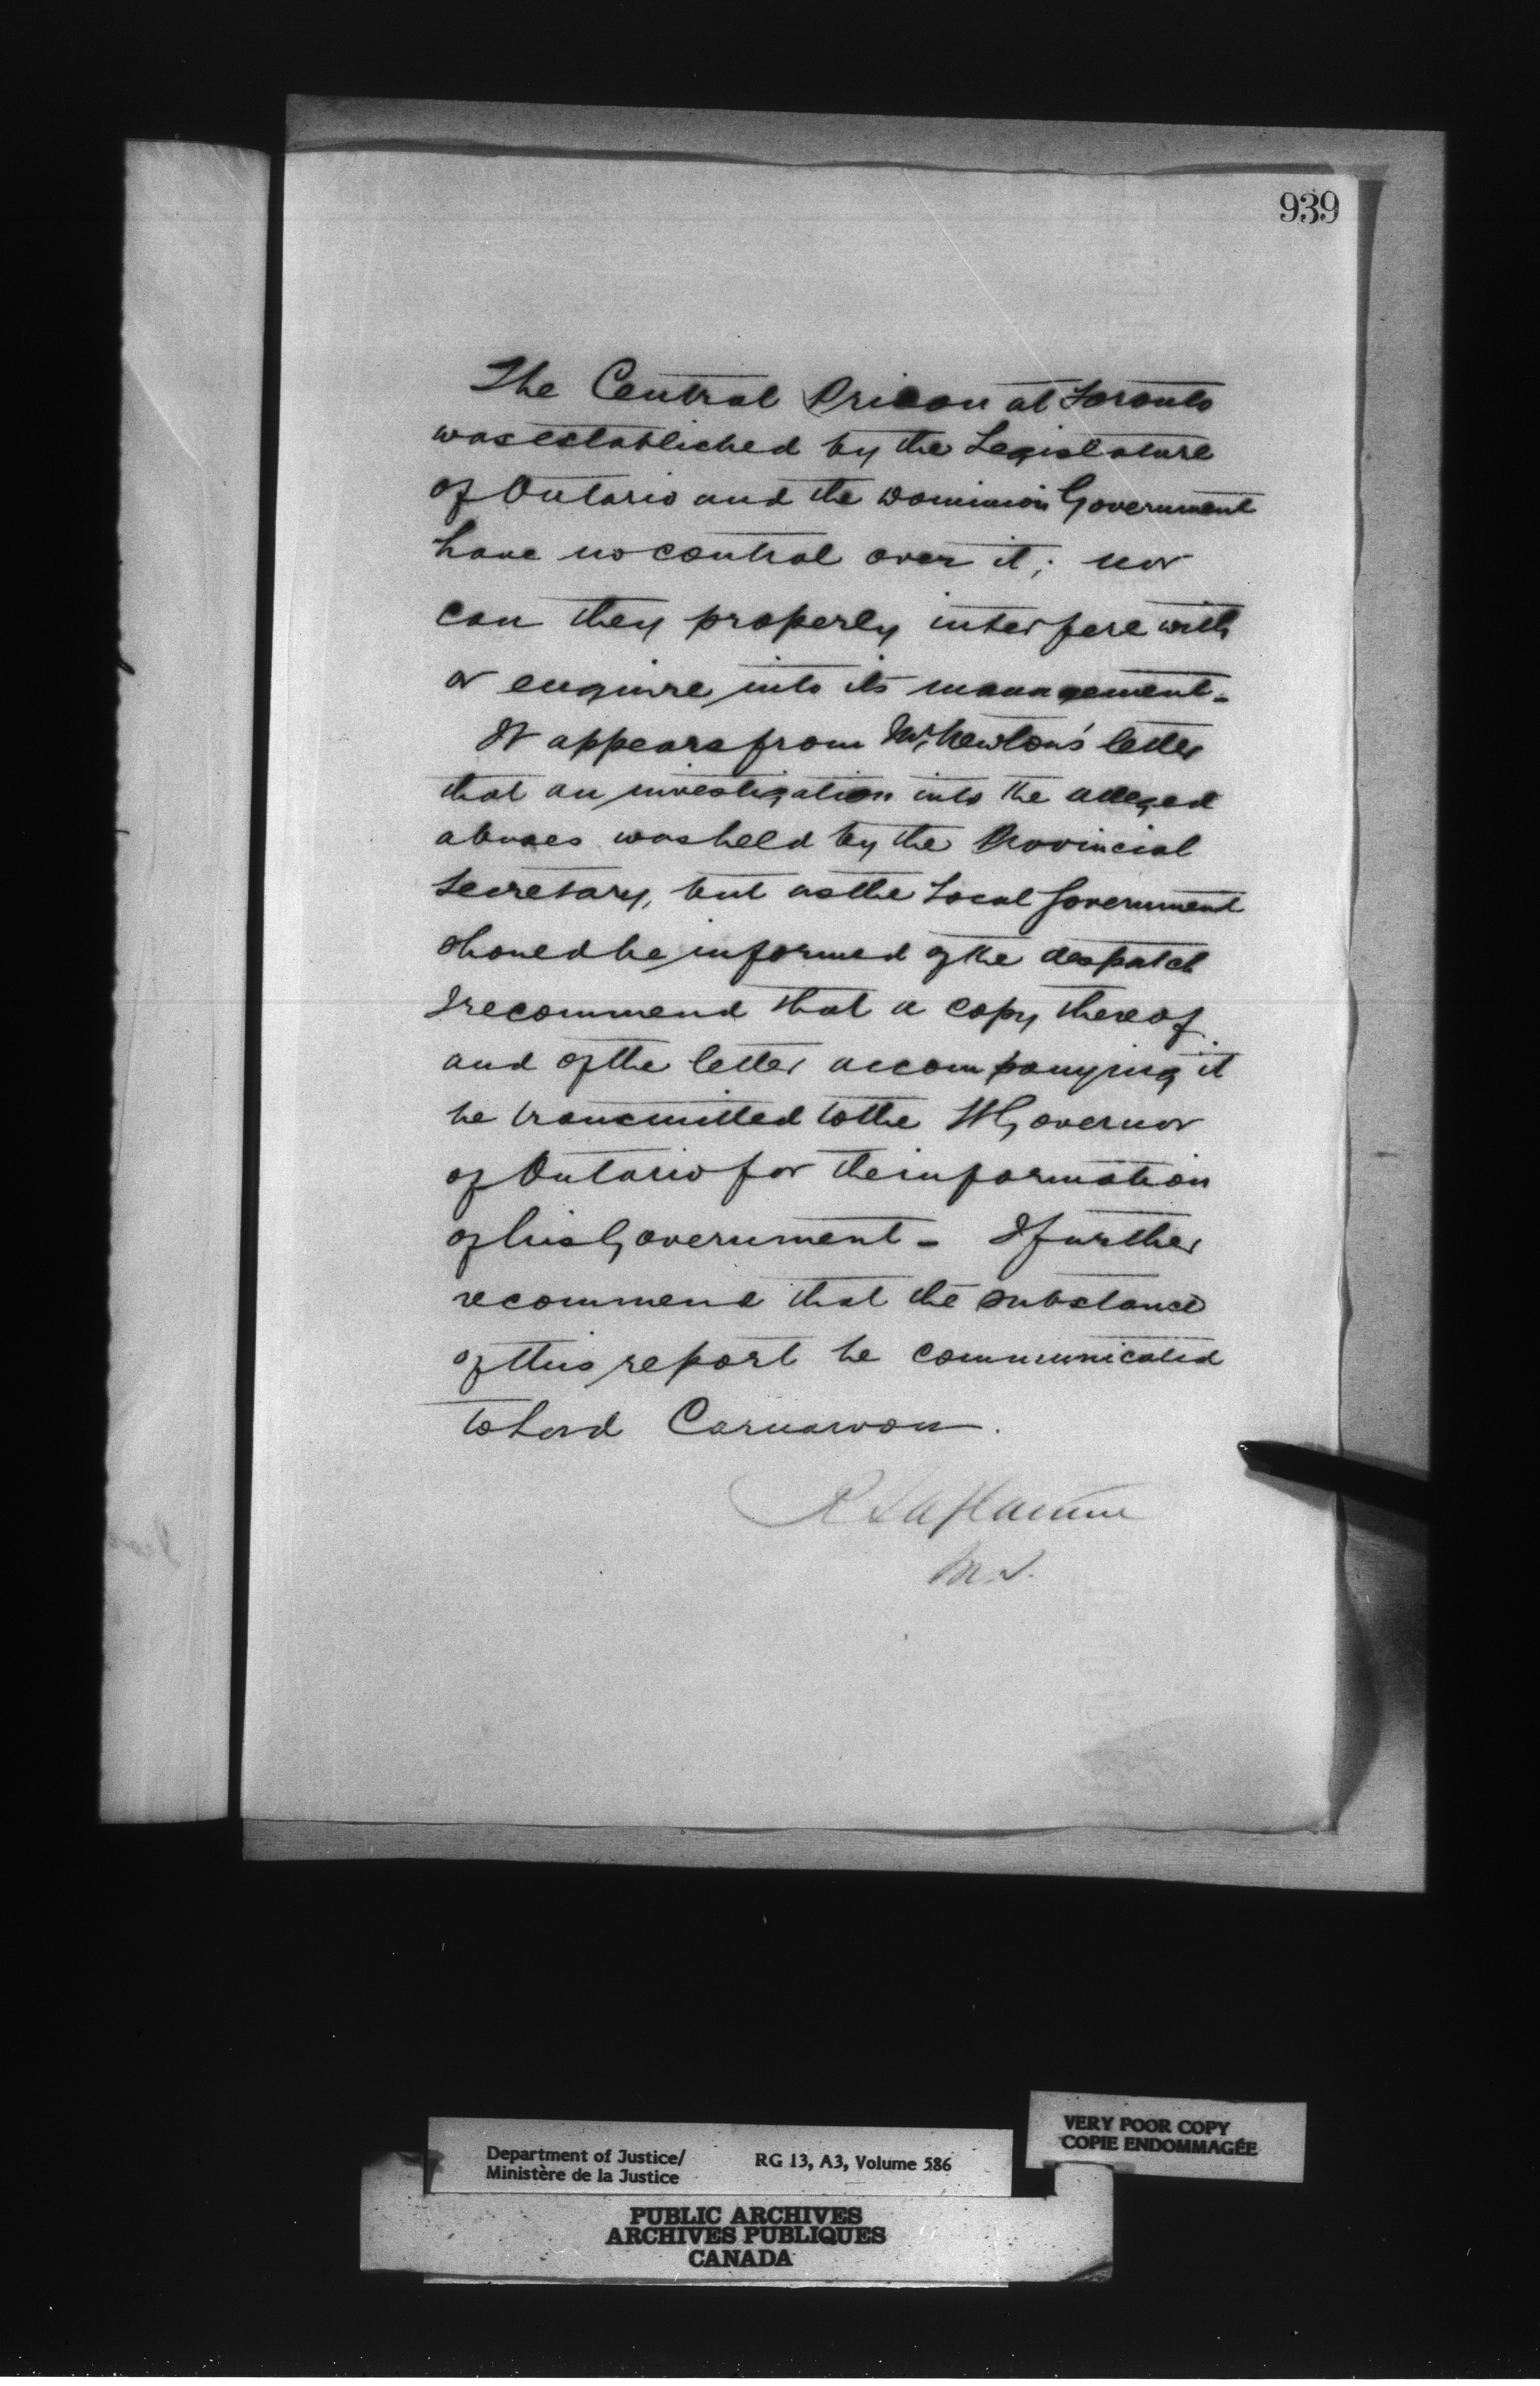 939
The Central Prison at Toronto
was established by the Legislature
of Ontario and the Dominion Government
have no control over it; nor
can they properly interfere with
or enquire into its management -
It appears from Mr. Newton's letter
that an investigation into the alleged
abuses was held by the Provincial
Secretary, but as the Local Government
should be informed of the despatch
I recommend that a copy thereof
and of the letter accompanying it
be transmitted to the Lt Governor
of Ontario for the information
of his Government - I further
recommend that the substance
of this report be communicated
to Lord Carnarvon.
R Laflamme
M.J.
Department of Justice/ RG 13, A3, Volume 586
Ministère de la Justice
VERY POOR COPY
COPIE ENDOMMAGÉE
PUBLIC ARCHIVES
ARCHIVES PUBLIQUES
CANADA